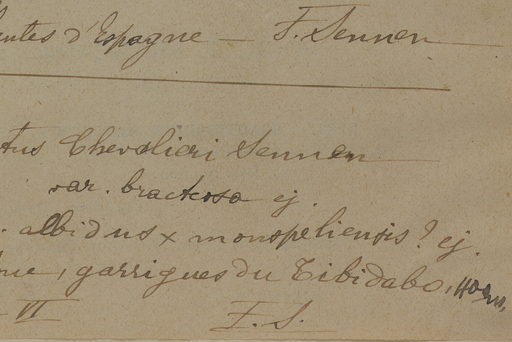 d'Espagne — F. Sennen
Chevalieri Sennen
var. bracteosa ej.
albidus x monspeliensis? ej.
garrigues du Tibidabo,
VI F. S.